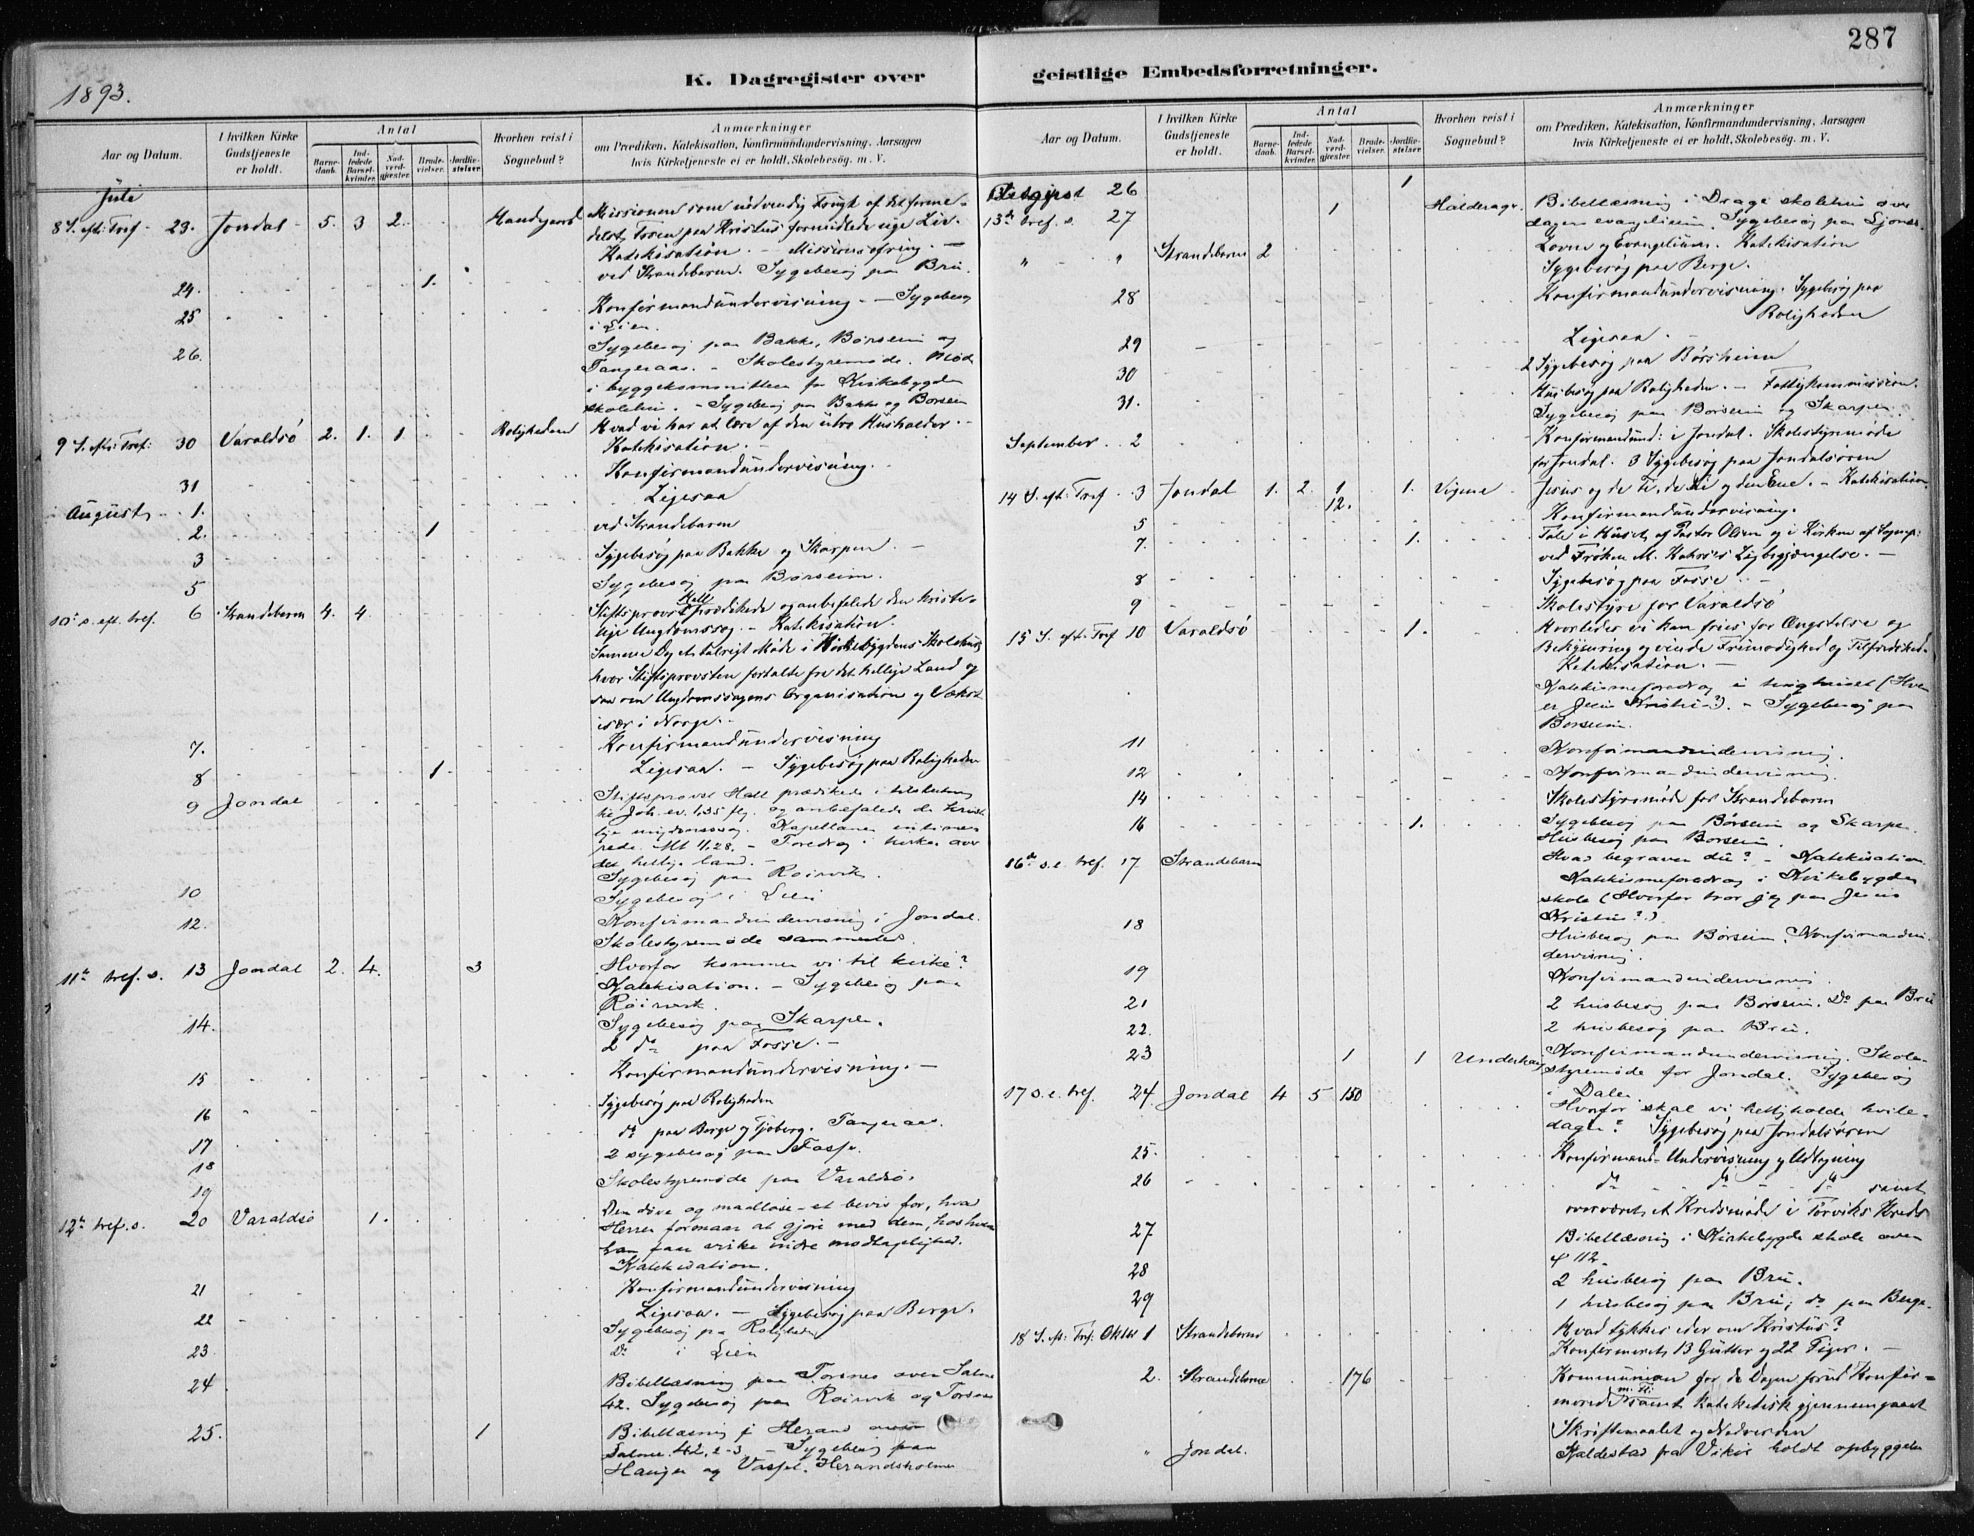 287
K. Dagregister over geistlige Embedsforretninger.
1893.
Aar og Datum.
I hvilken Kirke Gudstjeneste er holdt.
Antal
Barnedaab.
Indledede Barselkvinder.
Nadverdgjæster.
Brudevielser.
Jordfæstelser.
Hvorhen reist i Sognebud?
Anmærkninger
om Prædiken, Katekisation, Konfirmandundervisning, Aarsagen
hvis Kirketjeneste ei er holdt, Skolebesøg. m. V.
Juli
8 S. eft. Tref. 23. Jondal 5. 3 2. Missionen som nødvendig Frugt af det forme-
Katekisation. - Missionsofring. -
24. 1. ved Strandebarm. Sygebesøg paa Bru.
25 Konfirmandundervisning. - Sygebesøg
i Lien.
26. Sygebesøg paa Bakke, Børseim og
Tangeraas. - Skolestyremøde. Møde
i byggekommitteen for Kirkebygden
skolehus. - Sygebesøg paa Bakke og Børseim
9 S. eft. Tref. 30 Varaldsø 2. 1. 1. Roligheden Hvad vi har at lære af den utro Husholder. -
Katekisation. -
Konfirmandundervisning.
31 Ligesaa
August 1. ved Strandebarm
2. 1 Sygebesøg paa Bakke og Skarpen. -
3 Sygebesøg paa Børseim.
5
10de s. eft. tref. 6 Strandebarm 4. 4. Stiftsprovst Hall prædikede og anbefalede den kriste-
lige Ungdomssag. - Katekisation.
Samme Dag et talrigt Møde i Kirkebygdens Skolehus,
hvor Stiftsprovsten fortalte fra det hellige Land og
saa om Ungdomssagens Organisation og Vækst
især i Norge. -
7. Konfirmandundervisning
8 1. Ligesaa. - Sygebesøg paa Roligheden
9 Jondal Stiftsprovst Hall prædikede i tilslutning
til Joh. ev. 1,35 flg. og anbefalede de krist-
lige ungdomssag. Kapellanen intimerede
Mt 11,28. - Foredrag i kirken over
det hellige land. -
Sygebesøg paa Røirvik.
10 Sygebesøg i Lien
12. Konfirmandundervisning i Jondal.
Skolestyremøde sammesteds.
11te tref. s. 13 Jondal 2. 4. 3 Hvorfor kommer vi til kirke?
Katekisation. - Sygebesøg paa
Røirvik.
14. Sygebesøg paa Skarpen.
2 do paa Fosse. -
15 Konfirmandundervisning. -
16 Sygebesøg paa Roligheden
17 do paa Berge og Tjoberg. Tangeraas.
18 2 sygebesøg paa Fosse.
19 Skolestyremøde paa Varaldsø.
12te tref. s. 20 Varaldsø 1. Den døve og maalløse - et bevis for, hva
Herren formaar at gjøre med dem, hos hvem
han faar virke indre modtagelighed.
Katekisation.
21 Konfirmandundervisning
22 Ligesaa. - Sygebesøg paa Berge.
Sygebesøg paa Roligheden
23. Do i Lien
24 Bibellæsning paa Torsnes over Salme
42. Sygebesøg paa Røirvik og Torsnes
25. 1 Bibellæsning i Herand over
Salme 42, 2-3. - Sygebesøg paa
Hauge og Vassel. Herandsholmen
Aar og Datum.
I hvilken Kirke Gudstjeneste er holdt.
Antal
Barnedaab.
Indledede Barselkvinder.
Nadverdgjæster.
Brudevielser.
Jordfæstelser.
Hvorhen reist i Sognebud?
Anmærkninger
om Prædiken, Katekisation, Konfirmandundervisning, Aarsagen
hvis Kirketjeneste ei er holdt, Skolebesøg. m. V.
26 1 Bibellæsning i Drage skolehus over
13de tref. s. 27 1 dagens evangelium. Sygebesøg paa
Loven og Evangelium. Katekisation
" " Strandebarm 2 Sygebesøg paa Berge.
28 Konfirmandundervisning. Sygebesøg paa
Roligheden
29 Ligesaa. -
30 2 Sygebesøg paa Børsheim
31. Husbesøg paa Roligheden. - Fattigkommission.
Sygebesøg paa Børseim og Skarpen.
September 2 Konfirmandund: i Jondal. Skolestyremøde
for Jondal. 3 Sygebesøg paa Jondalsøren
14 S. eft: Tref. 3 Jondal 1. 2. 1 1. Vigene Jesus og de Ti, de Ni og den Ene. - Katekisation.
12.
5 Konfirmandundervisning.
7. 1. Tale i Huset af Pastor Olsen og i Kirken af Sognep:
ved Frøken M. Ligbegjængelse. -
8 Sygebesøg paa Fosse. -
9 Skolestyre for Varaldsø
15 S. eft: Tref 10 Varaldsø 1. Hvorledes vi kan fries for Ængstelse og
Bekymring og vinde Frimodighed og Tilfredshed.
Katekisation. -
Katekismeforedrag i tinghuset (Hvem
er Jesus Kristus?). - Sygebesøg paa
Børseim.
11 Konfirmandundervisning.
12 Konfirmandundervisning.
14 Skolestyremøde for Strandebarm
16 1. Sygebesøg paa Børseim og Skarpen.
Husbesøg paa Børseim.
16de s. e. tref. 17 Strandebarm Hvad begraver du? - Katekisation.
Katekismeforedrag i Kirkebygden
skole (Hvorfor tror jeg paa Jesus
Kristus?.)
18 Husbesøg paa Børseim. Konfirmandun-
dervisning.
19 Konfirmandundervisning.
21 2 husbesøg paa Børseim. Do paa Bru
22. 2 husbesøg paa Bru.
23 1 1 Konfirmandundervisning. Skole-
styremøde for Jondal. Sygebesøg
i Dalen.
17 s. e. tref. 24. Jondal 4 5 150 Hvorfor skal vi helligholde hvile-
dagen? Sygebesøg paa Jondalsøren
25. Konfirmand-Undervisning og Udtagning
26 do - do - do samt
overværet et Kredsmøde i Torviks Kreds
27 Bibellæsning i Kirkebygds skole over
ψ 112.
28 2 husbesøg paa Bru.
29 1 husbesøg paa Bru; do paa Berge.
18 S. eft: Tref: Oktbr 1 Strandebarm Hvad tykkes eder om Kristus?
Konfirmeret 13 Gutter og 22 Piger. -
2. Strandebarm 176 Kommunion for de Dagen forud Konfir-
merede m. fl. samt katekedisk gjennemgaaet
Skriftemaalet og Nadverden
" Jondal. Kaldestad fra Vikør holdt opbyggelse